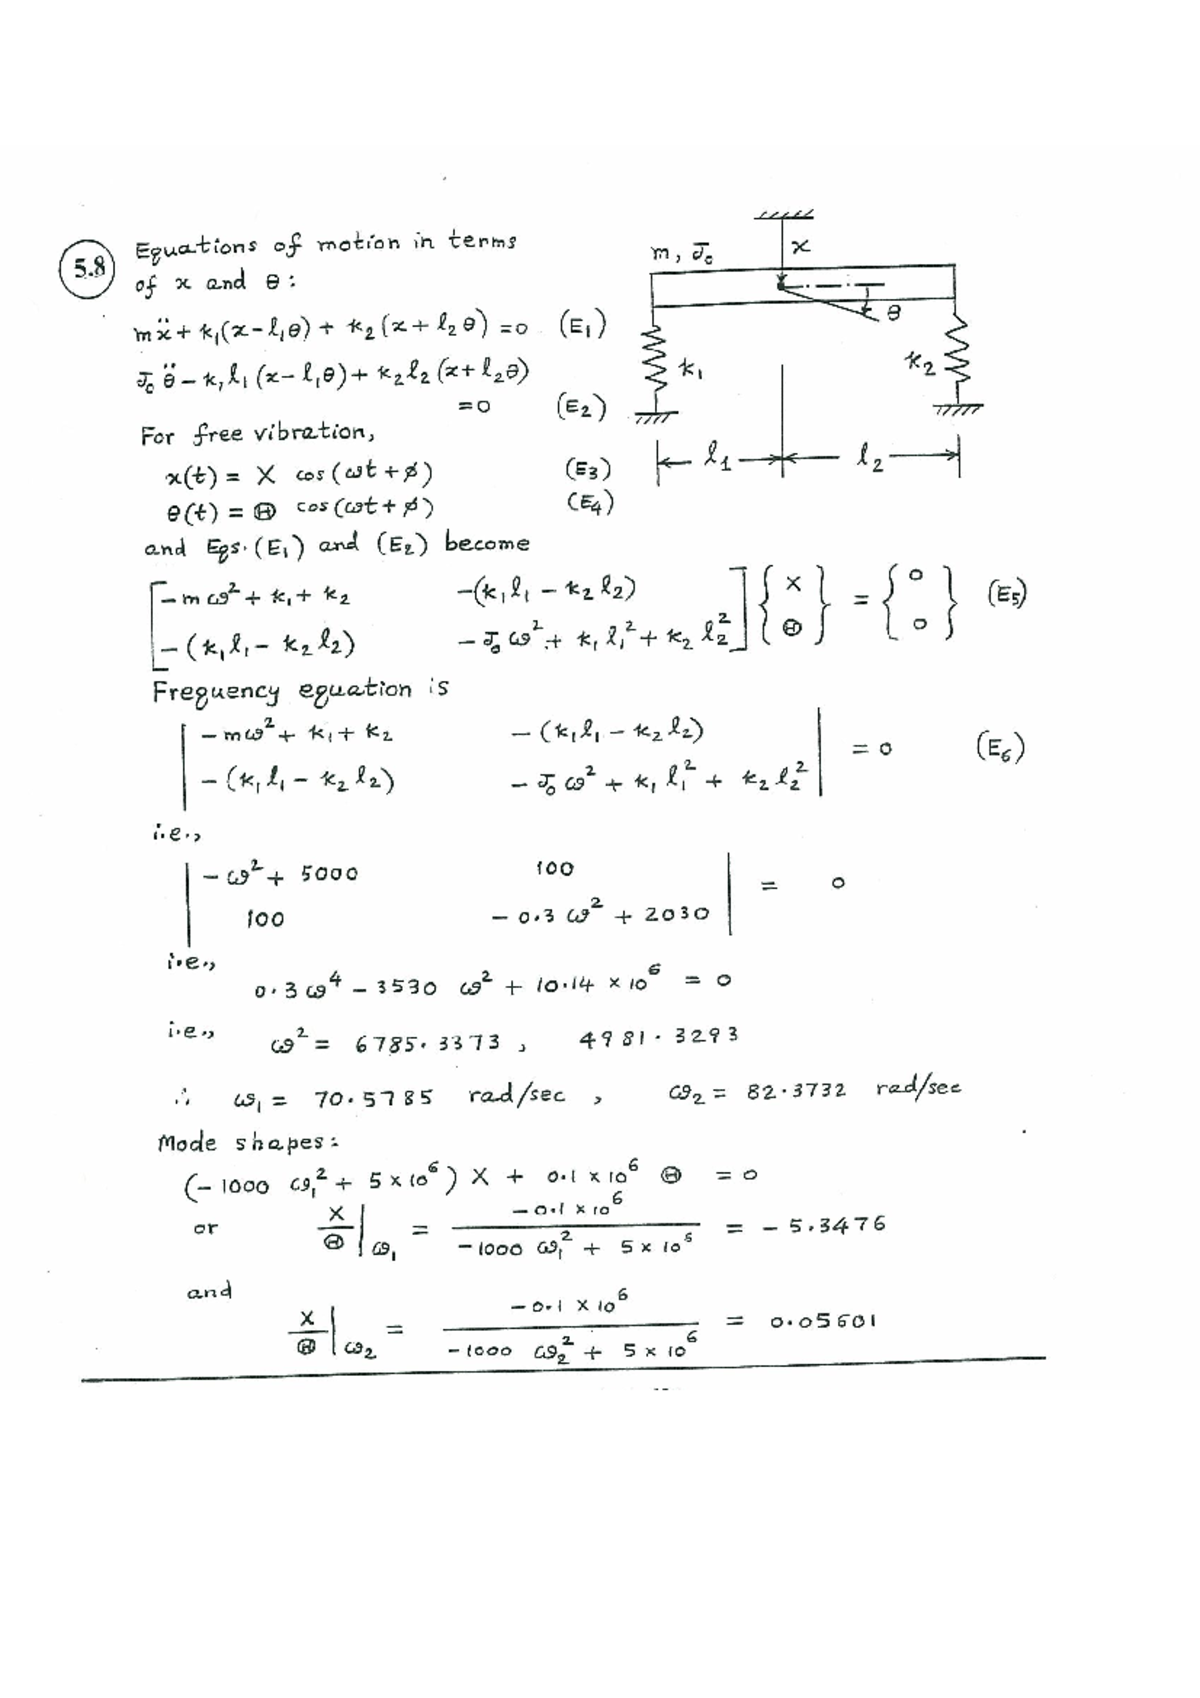 5.8 Equations of motion in terms
of x and θ:
mẍ + k₁(x - l₁θ) + k₂(x + l₂θ) = 0 (E₁)
J₀θ̈ - k₁l₁(x - l₁θ) + k₂l₂(x + l₂θ)
= 0 (E₂)
m, J₀
x
θ
k₁
k₂
l₁
l₂
For free vibration,
x(t) = X cos(ωt + φ) (E₃)
θ(t) = Θ cos(ωt + φ) (E₄)
and Eqs. (E₁) and (E₂) become
[ -mω² + k₁ + k₂ -(k₁l₁ - k₂l₂) ] { X } = { 0 } (E₅)
[ -(k₁l₁ - k₂l₂) -J₀ω² + k₁l₁² + k₂l₂² ] { Θ } { 0 }
Frequency equation is
| -mω² + k₁ + k₂ -(k₁l₁ - k₂l₂) | = 0 (E₆)
| -(k₁l₁ - k₂l₂) -J₀ω² + k₁l₁² + k₂l₂² |
i.e.,
| -ω² + 5000 100 | = 0
| 100 -0.3ω² + 2030 |
i.e.,
0.3ω⁴ - 3530 ω² + 10.14 × 10⁶ = 0
i.e., ω² = 6785.3373, 4981.3293
∴ ω₁ = 70.5785 rad/sec, ω₂ = 82.3732 rad/sec
Mode shapes:
(-1000 ω₁² + 5 × 10⁶) X + 0.1 × 10⁶ Θ = 0
or X/Θ |ω₁ = -0.1 × 10⁶ / -1000 ω₁² + 5 × 10⁶ = -5.3476
and
X/Θ |ω₂ = -0.1 × 10⁶ / -1000 ω₂² + 5 × 10⁶ = 0.05601